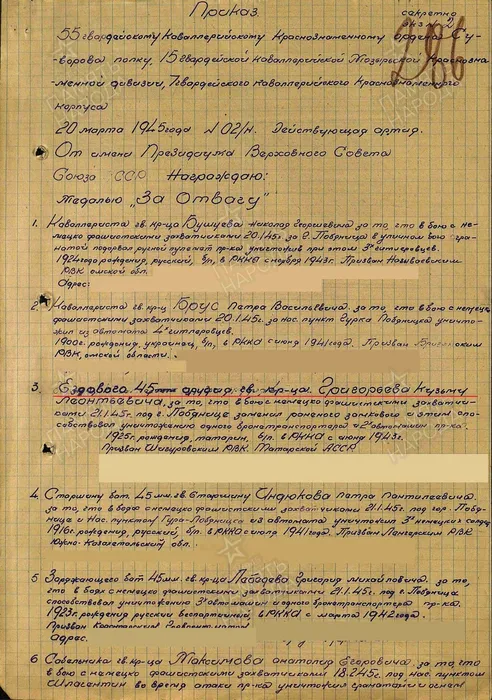 Приказ
секретно
экз. 2
286
55 гвардейскому Кавалерийскому Краснознаменному ордена Су-
ворова полку, 15 гвардейской Кавалерийской Мозырской Краснозна-
менной дивизии, 7 гвардейского Кавалерийского Краснознаменного
корпуса
20 марта 1945 года №02/н. Действующая армия.
От имени Президиума Верховного Совета
Союза ССР Награждаю:
Медалью „За Отвагу"
1. Кавалериста гв. кр-ца Бушуева Николая Георгиевича за то, что в бою с не-
мецко фашистскими захватчиками 20.1.45г. за в уличном бою гра-
натой подорвал ручной пулемет пр-ка уничтожив при этом 3х гитлеровцев.
1924 года рождения, русский, б/п, в РККА с ноября 1943г. Призван Называевским
РВК омской обл.
Адрес:
2. Кавалериста гв. кр-ца Брус Петра Васильевича за то, что в бою с немецко
фашистскими захватчиками 20.1.45г. за нас. пункт Гурка Лобдница уничто-
жил из автомата 4х гитлеровцев.
1900г. рождения, украинец, б/п, в РККА с июня 1941 года. Призван
РВК, омской области.
3. Ездового 45мм орудия гв. кр-ца Григорьева Кузьму
Леонтьевича, за то, что в бою с немецко фашистскими захватчи-
ками 21.1.45г. под г. Лобдница заменил раненого замкового и этим спо-
собствовал уничтожению одного бронетранспортера и 2х автомашин пр-ка.
1925г. рождения, татарин, б/п. в РККА с июня 1943г.
Призван РВК. Татарской АССР
4. Старшину бат. 45 мм. гв. Старшину Индюкова Петра Пантилеевича
за то, что в бою с немецко фашистскими захватчиками 21.1.45г. под гор. Лобд-
ница и Нас. пунктом Гура-Лобдница из автомата уничтожил 3х немецких солдат
1916г. рождения, русский, б/п в РККА с июня 1941 года. Призван Ленгерским РВК
Южно-Казахстанской обл.
5. Заряжающего бат. 45 мм. гв. кр-ца Лебедева Григория Михайловича за то,
что в боях с немецко фашистскими захватчиками 21.1.45г. под г. Лобдница
способствовал уничтожению 3х автомашин и одного бронетранспортера пр-ка.
1923г. рождения русский беспартийный, в РККА с марта 1942 года.
Призван
адрес.
6. Сабельника гв. кр-ца Максимова Анатолия Егоровича за то, что
в бою с немецко фашистскими захватчиками 18.2.45г. под нас. пунктом
во время атаки пр-ка уничтожил гранатой и огнем